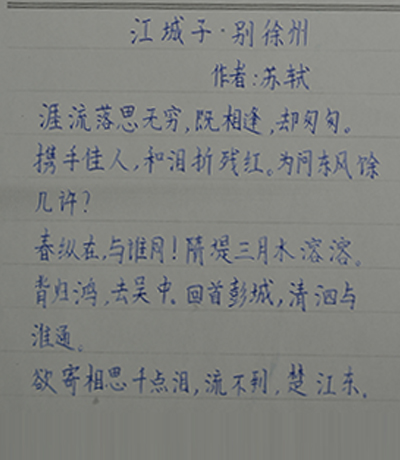 江城子·别徐州
作者:苏轼
涯流落思无穷,既相逢,却匆匆。
携手佳人,和泪折残红。为问东风馀
几许?
春纵在,与谁同!隋堤三月水溶溶。
背归鸿,去吴中。回首彭城,清泗与
淮通。
欲寄相思千点泪,流不到,楚江东。